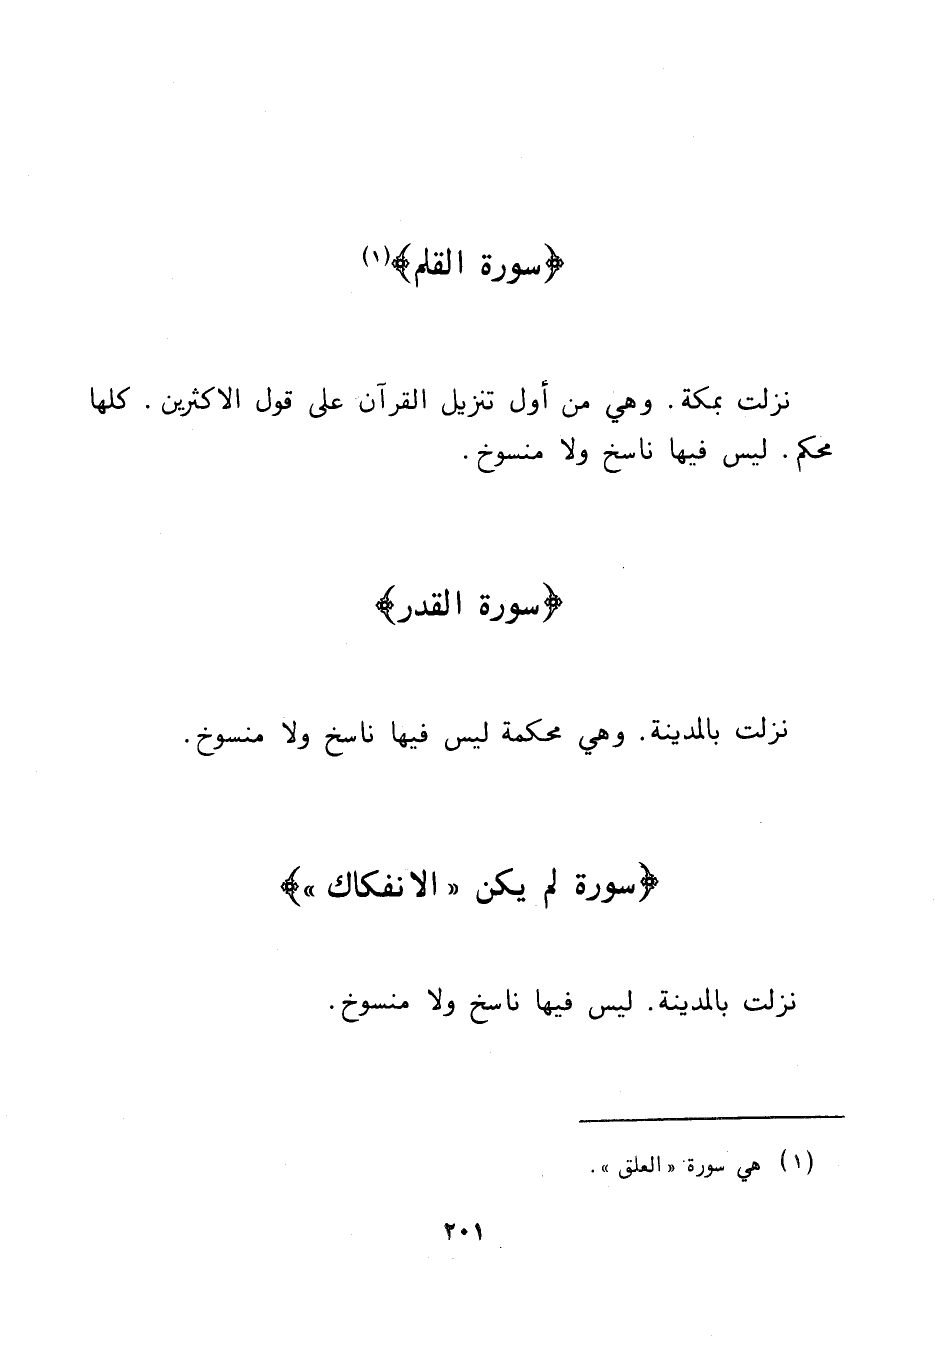 ﴿سورة القلم﴾(١)
نزلت بمكة. وهي من أول تنزيل القرآن على قول الاكثرين. كلها
محكم. ليس فيها ناسخ ولا منسوخ.
﴿سورة القدر﴾
نزلت بالمدينة. وهي محكمة ليس فيها ناسخ ولا منسوخ.
﴿سورة لم يكن « الانفكاك »﴾
نزلت بالمدينة. ليس فيها ناسخ ولا منسوخ.
(١) هي سورة « العلق ».
٢٠١